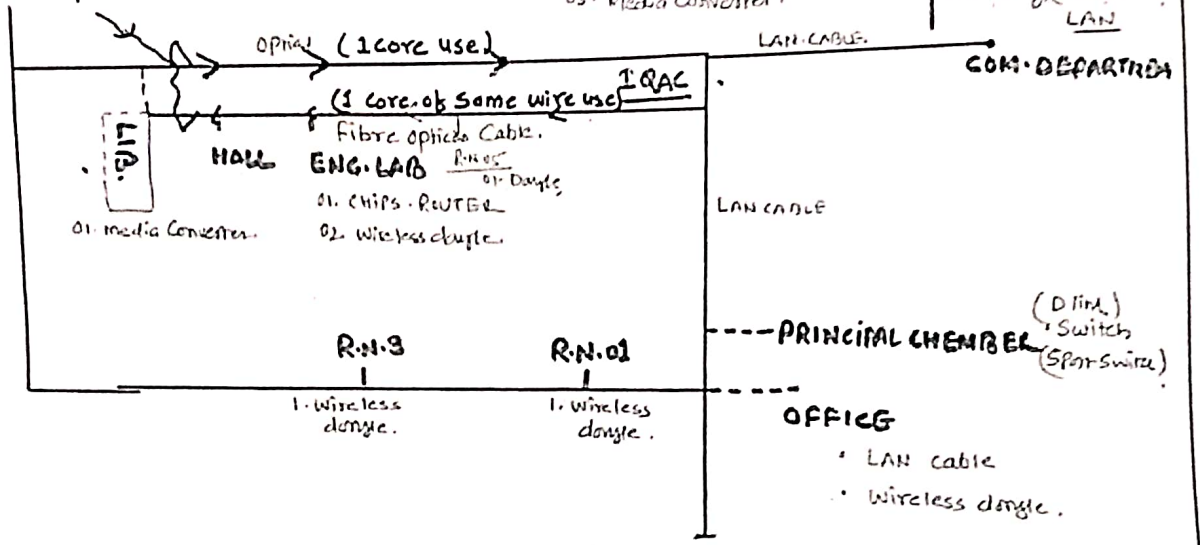 03. Media Converter.
LAN
Optical (1 core use)
LAN-CABLE.
COM. DEPARTMEN
IQAC
(1 core of same wire use)
Fibre optical Cable.
LIB.
HALL
ENG. LAB
R.N 05
01. Dongle
01. CHIPS. ROUTER
02. Wireless dongle.
01. media Converter.
LAN CABLE
(D link)
PRINCIPAL CHEMBER
Switch
R.N.3
R.N.01
1. Wireless
dongle.
1. Wireless
dongle.
OFFICE
LAN cable
Wireless dongle.